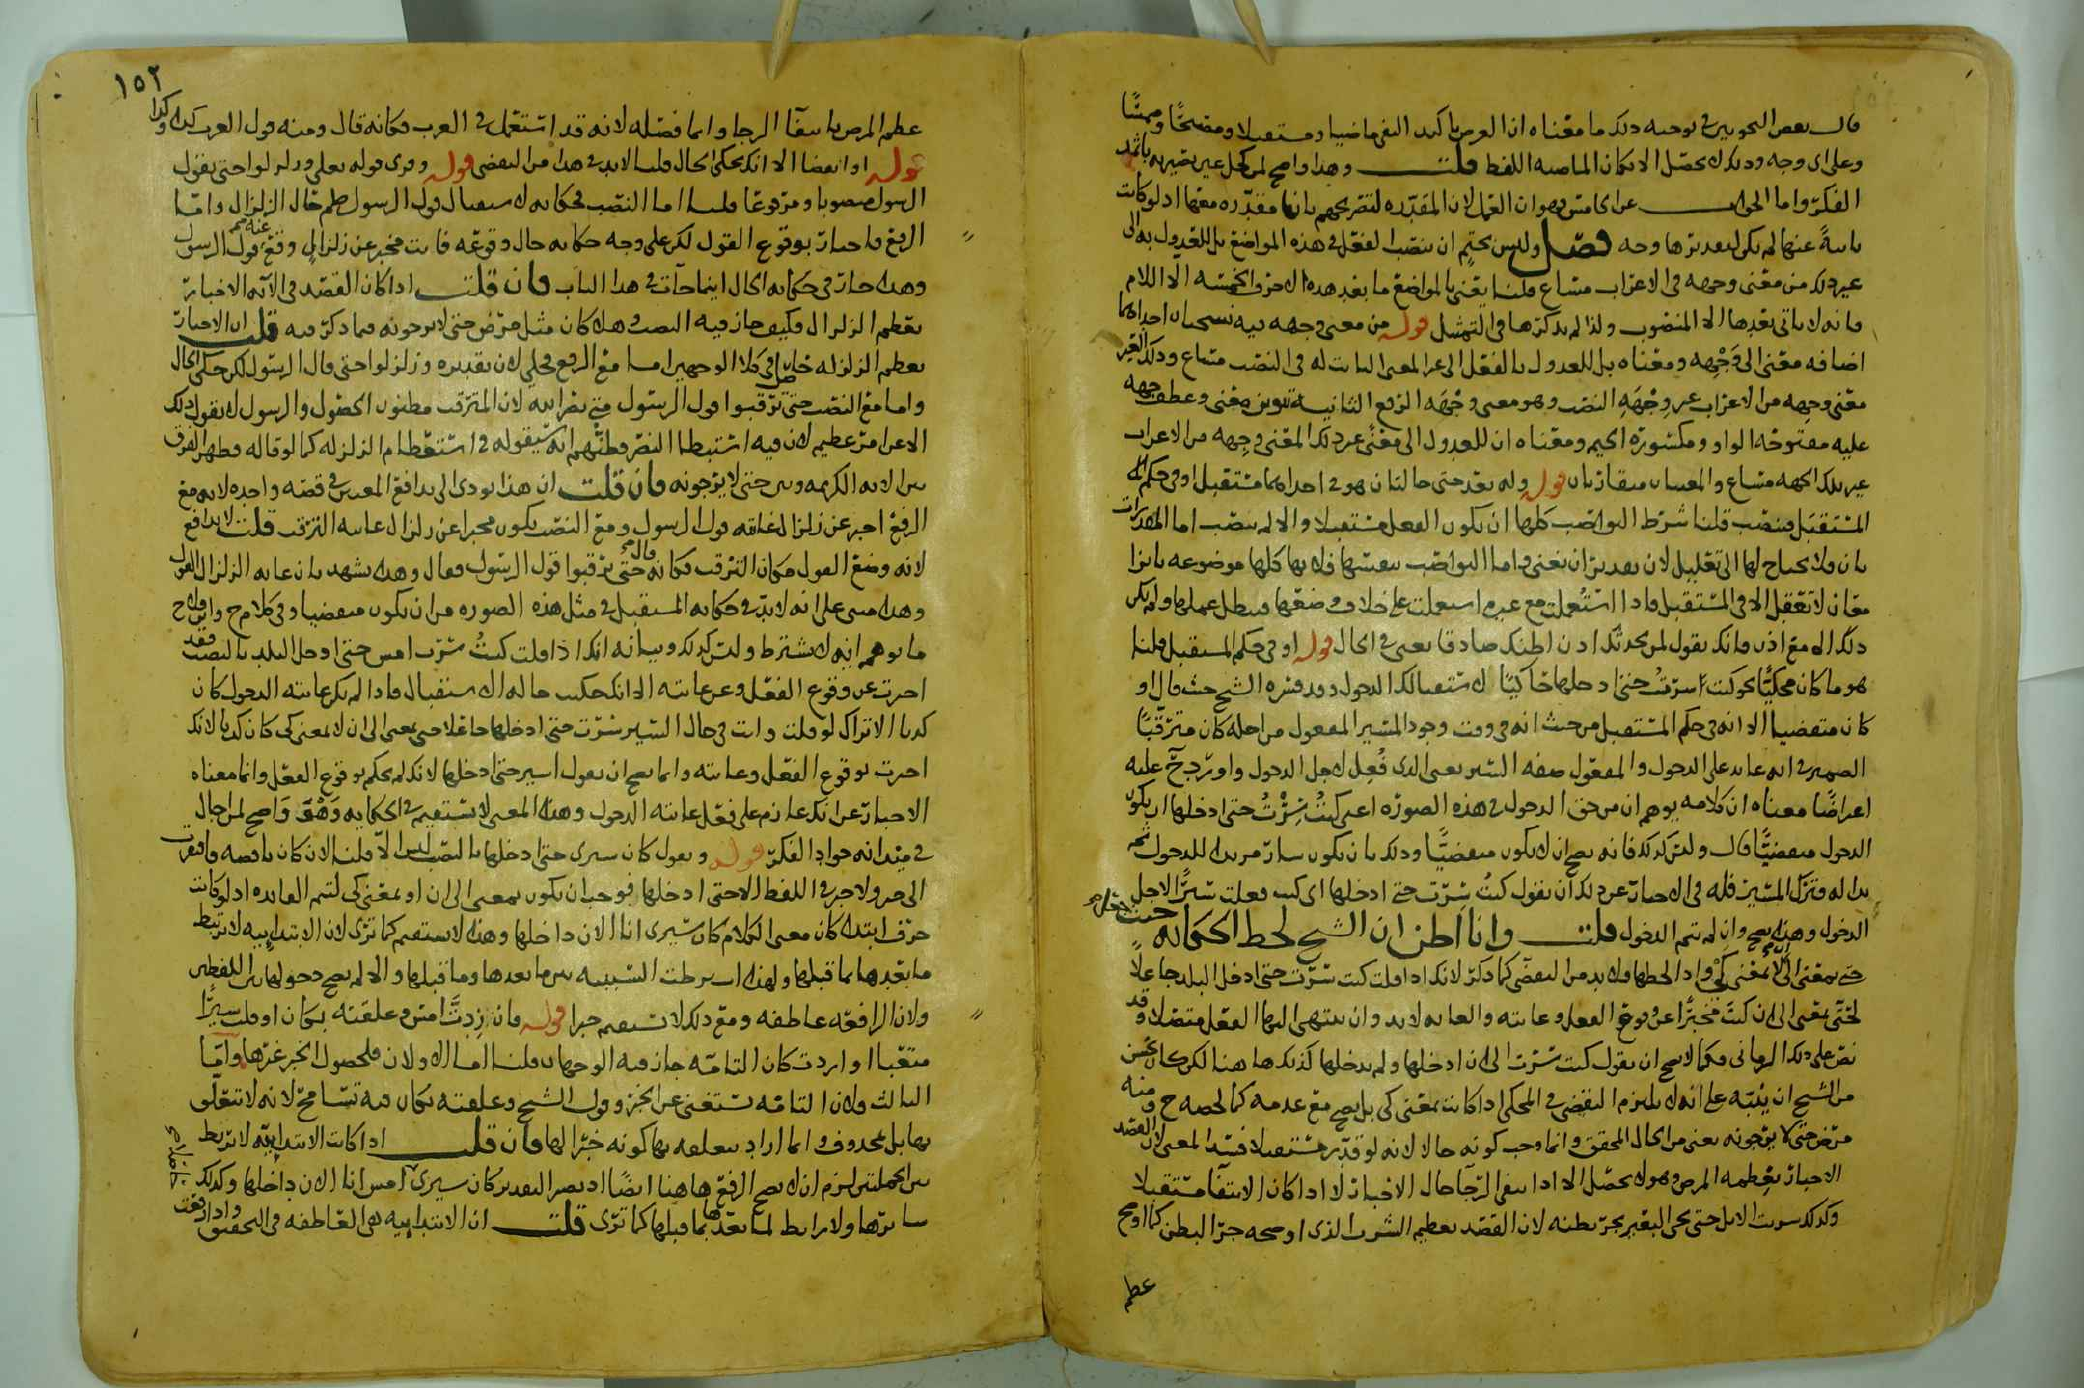 قال بعض النحويين في توجيه ذلك ما معناه ان الغرض تاكيد النفي ماضيا ومستقبلا ومصبحًا وممسيًا
وعلى اي وجه وذلك لا يحصل الا بكان الماضيه اللفظ قلت وهذا واضح لمن كحل عين بصيرته باثمد
الفكر واما الجواب عن الخامس فهو ان العمل لان المقدره لتصريحهم بانها مقدره معها اذ لو كانت
نايبةً عنها لم يكن لتقديرها وجه فصل وليس بحتم ان ينصب الفعل في هذه المواضع بل للعدول به الى
غير ذلك من معنى وجهه في الاعراب مساغ قلنا يعني بالمواضع ما بعد هذه الاحرف الخمسه الا اللام
فانه لا ياتي بعدها الا المنصوب ولذا لم يذكرها في التمثيل قوله من معنى وجهه فيه نسختان احداهما
اضافه معنى الى وجهه ومعناه بل للعدول بالفعل الى غير المعنى الثابت له في النصب مساغ وذلك الغير
معنى وجهه من الاعراب غير وجهه النصب وهو معنى وجهه الرفع الثانية تنوين معنى وعطف وجهه
عليه مفتوحه الواو ومكسوره الجيم ومعناه ان للعدول الى معنًى غير ذلك المعنى وجهه من الاعراب
غير تلك الجهه مساغ والمعنيان متقاربان قوله وله بعد حتى حالتان هو في احداهما مستقبل او في حكم
المستقبل فينصب قلنا شرط النواصب كلها ان يكون الفعل مستقبلا والا لم ينصب اما المقدرات
بان فلا يحتاج لها الى تعليل لان تقدير ان يغني واما النواصب بنفسها فلانها كلها موضوعه بازا
معان لا تعقل الا في المستقبل فاذا استعملت مع غيره استعملت على خلاف وضعها فبطل عملها ولم يكن
ذلك الا مع اذن فانك تقول لمن يحدثك اذن اظنك صادقا يعني في الحال قوله او في حكم المستقبل قلنا
هو ما كان محكيًا نحو كنت سرت حتى ادخلها حاكيًا لاستقبالك الدخول وقد فسره الشيخ حيث قال او
كان متقضيا الا انه في حكم المستقبل من حيث انه في وقت وجود المسير المفعول من اجله كان مترقبًا
الضمير في انه عايد على الدخول والمفعول صفه السير يعني الذي فُعِل لاجل الدخول واورد ح عليه
اعراضًا معناه ان كلامه يوهم ان من حق الدخول في هذه الصوره اعني كنتُ سِرْتُ حتى ادخلها ان يكون
الدخول متقضيًا قال وليس كذلك فانه يصح ان لا يكون متقضيًا وذلك بان يكون سار مريدا للدخول ثم
بدا له وترك المسير فله في الاخبار عن ذلك ان يقول كنتُ سِرْت حتى ادخلها اي كنت فعلت سيرًا لاجل
الدخول وهذا يصح وان لم يتم الدخول قلت وانا اظن ان الشيخ لحظ الحكايه حيث
حتى بمعنى الى لا بمعنى كي واذا لحظها فلا بد من التقضي كما ذكر لانك اذا قلت كنت سرت حتى ادخل البلد جاعلًا
لحتى بمعنى الى ان كنت مخبرًا عن وقوع الفعل وغايته والغايه لا بد وان ينتهي اليها الفعل متصلا وقد
نص على ذلك الرماني فكما لا يصح ان يقول كنت سرت الى ان ادخلها ولم يدخلها كذلك هاهنا لكن كان يحسن
من الشيخ ان ينبه على انه لا يلزم التقضي في المحكي اذا كانت بمعنى كي بل يصح مع عدمه كما لخصه ح ومنه
مرض حتى لا يرجونه يعني من الحال المحقق وانما وجب كونه حالا لانه لو قدر مستقبلا فسد المعنى لان القصد
الاخبار بعظمه المرض وهو لا يحصل الا اذا انتفى الرجا حال الاخبار لا اذا كان الانتفا مستقبلا
وكذلك سرت الابل حتى يجي البعير يجر بطنه لان القصد تعظيم الشرب الذي اوجبه جر البطن كما اوضح
عظم
١٥٢
عظم المرض بانتفا الرجا وانما فصله لانه قد استعمل في العرب فكانه قال ومنه قول العرب كذا وكذا
قوله او انقضا الا انك تحكي الحال قلنا لا بد في هذا من التقضي قوله وقرى قوله تعلى وزلزلوا حتى يقول
الرسول منصوبا ومرفوعًا قلنا اما النصب فحكايه لاستقبال قول الرسول حال الزلزال واما
الرفع فاخبار بوقوع القول لكن على وجه حكايه حال وقوعه فانت مخبر عن زلزال وقع عنه قول الرسول
وهذا جار في حكايه الحال اينما جات في هذا الباب فان قلت اذا كان القصد في الايه الاخبار
بعظم الزلزال فكيف جاز فيه النصب وهلا كان مثل مرض حتى لا يرجونه فيما ذكر فيه قلت ان الاخبار
بعظم الزلزله حاصل في كلا الوجهين اما مع الرفع فجلي لان تقديره وزلزلوا حتى قال الرسول لكن حكى الحال
واما مع النصب حتى ترقبوا قول الرسول متى نصر الله لان المترقب مظنون الحصول والرسول لا يقول ذلك
الا عن امر عظيم لان فيه استبطا النصر وظنهم انه سيقوله في استعظام الزلزله كما لو قاله وظهر الفرق
بين الايه الكريمه وبين حتى لا يرجونه فان قلت ان هذا يودي الى تدافع المعنيين في قصه واحده لانه مع
الرفع اخبر عن زلزال غايته قول الرسول ومع النصب يكون مخبرا عن زلزال غايته الترقب قلت لا تدافع
لانه وضع القول مكان الترقب فكانه قال حتى ترقبوا قول الرسول فقال وهذا يشهد بان غايه الزلزال القول
وهذا مبني على انه لا بد في حكايه المستقبل في مثل هذه الصوره من ان يكون متقضيا وفي كلام ح
ما يوهم انه لا يشترط وليس كذلك وبيانه انك اذا قلت كنتُ سرت امس حتى ادخل البلد بالنصب فقد
اخبرت عن وقوع الفعل وعن غايته الا انك حكيت حاله الاستقبال فاذا لم يكن غايته الدخول كان
كذبا الا تراك لو قلت وانت في حال السير سرت حتى ادخلها جاعلا حتى بمعنى الى ان لا بمعنى كي كان كذبا لانك
اخبرت بوقوع الفعل وغايته وانما يصح ان يقول اسير حتى ادخلها لانك لم تحكم بوقوع الفعل وانما معناه
الاخبار عن انك عازم على فعل غايته الدخول وهذا المعنى لا يستقيم في الحكايه وهو واضح لمن اجال
في ميدانه جواد الفكر قوله ويقول كان سيري حتى ادخلها بالنصب ليس الا قلنا لان كان ناقصه وافتقرت
الى خبر ولا خبر في اللفظ الا حتى ادخلها فوجب ان يكون بمعنى الى ان او بمعنى كي لتتم الفايده اذ لو كانت
حرف ابتدا كان معنى الكلام كان سيري انا الان داخلها وهذا لا يستقيم كما ترى لان الابتداييه لا تربط
ما بعدها بما قبلها ولهذا اشترطت السببيه بين ما بعدها وما قبلها والا لم يصح دخولها بين اللفظين
ولان الرافعه عاطفه ومع ذلك لا تستقيم خبرا قوله فان زدتَّ امس وعلقته بكان او قلت سيرًا
متعبا او اردت كان التامه جاز فيه الوجهان قلنا اما الاولان فلحصول الخبر غيرها واما
الثالث فلان التامه تستغني عن الخبر وقول الشيخ وعلقته بكان فيه تسامح لانه لا تتعلق
بها بل بمحذوف وانما اراد بتعلقه بها كونه خبرًا لها فان قلت اذا كانت الابتداييه لا تربط
بين الجملتين لزم ان لا يصح الرفع هاهنا ايضًا اذ يصير التقدير كان سيري امس انا الان داخلها وكذلك
سايرها ولا رابط لما بعدها بما قبلها كما ترى قلت ان الابتداييه هي العاطفه في التحقيق واذا وقعت